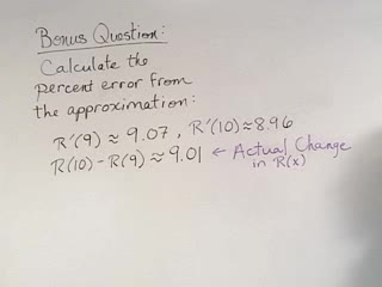 Bonus Question:
Calculate the
percent error from
the approximation:
R'(9) ≈ 9.07, R'(10)≈8.96
R(10) - R(9) ≈ 9.01 ← Actual Change
in R(x)